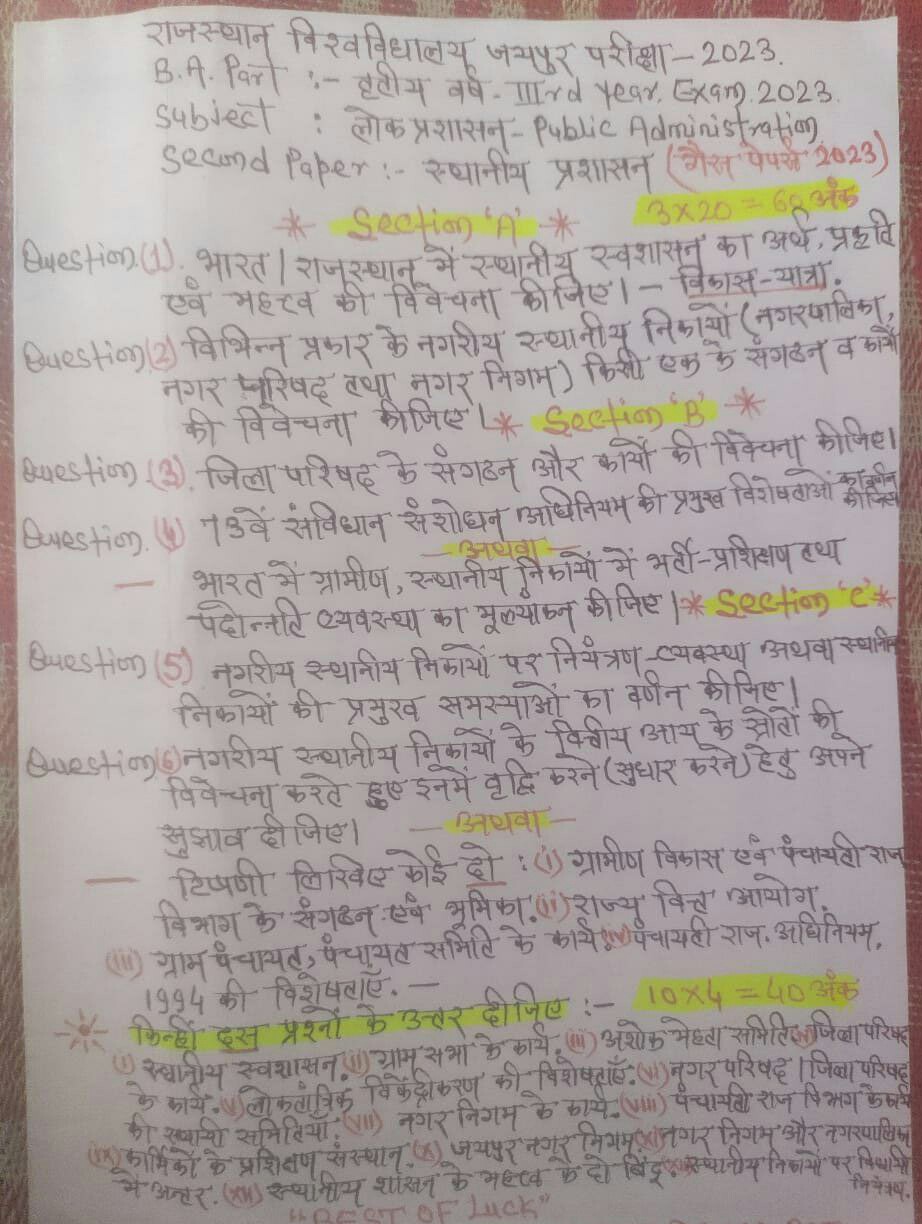 राजस्थान विश्वविद्यालय जयपुर परीक्षा - 2023.
B.A. Part :- तृतीय वर्ष - IIIrd Year. Exam. 2023.
Subject : लोक प्रशासन - Public Administration
Second Paper :- स्थानीय प्रशासन (गैस पेपर्स 2023)
3×20 = 60 अंक
* Section 'A' *
Question.(1). भारत/राजस्थान में स्थानीय स्वशासन का अर्थ, प्रकृति
एवं महत्त्व की विवेचना कीजिए। - विकास-यात्रा.
Question (2) विभिन्न प्रकार के नगरीय स्थानीय निकायों (नगरपालिका,
नगर परिषद तथा नगर निगम) किसी एक के संगठन व कार्यों
की विवेचना कीजिए। * Section 'B' *
Question.(3). जिला परिषद के संगठन और कार्यों की विवेचना कीजिए।
Question.(4) 73वें संविधान संशोधन अधिनियम की प्रमुख विशेषताओं का वर्णन कीजिए
- अथवा -
— भारत में ग्रामीण, स्थानीय निकायों में भर्ती-प्रशिक्षण तथा
पदोन्नति व्यवस्था का मूल्यांकन कीजिए। * Section 'C' *
Question (5) नगरीय स्थानीय निकायों पर नियंत्रण-व्यवस्था अथवा स्थानीय
निकायों की प्रमुख समस्याओं का वर्णन कीजिए।
Question (6) नगरीय स्थानीय निकायों के वित्तीय आय के स्रोतों की
विवेचना करते हुए इनमें वृद्धि करने (सुधार करने) हेतु अपने
सुझाव दीजिए। - अथवा -
— टिप्पणी लिखिए कोई दो : (i) ग्रामीण विकास एवं पंचायती राज
विभाग के संगठन एवं भूमिका. (ii) राज्य वित्त आयोग.
(iii) ग्राम पंचायत, पंचायत समिति के कार्य. (iv) पंचायती राज. अधिनियम,
1994 की विशेषताएँ. —
10×4 = 40 अंक
किन्हीं दस प्रश्नों के उत्तर दीजिए :-
(i) स्थानीय स्वशासन. (ii) ग्राम सभा के कार्य. (iii) अशोक मेहता समिति. (iv) जिला परिषद
के कार्य. (v) लोकतांत्रिक विकेंद्रीकरण की विशेषताएँ. (vi) नगर परिषद/जिला परिषद
की स्थायी समितियाँ. (vii) नगर निगम के कार्य. (viii) पंचायती राज विभाग के कार्य
(ix) कार्मिकों के प्रशिक्षण संस्थान. (x) जयपुर नगर निगम. (xi) नगर निगम और नगरपालिका
में अन्तर. (xii) स्थानीय शासन के महत्व के दो बिंदु. स्थानीय निकायों पर विधायी
नियंत्रण.
"BEST OF LUCK"